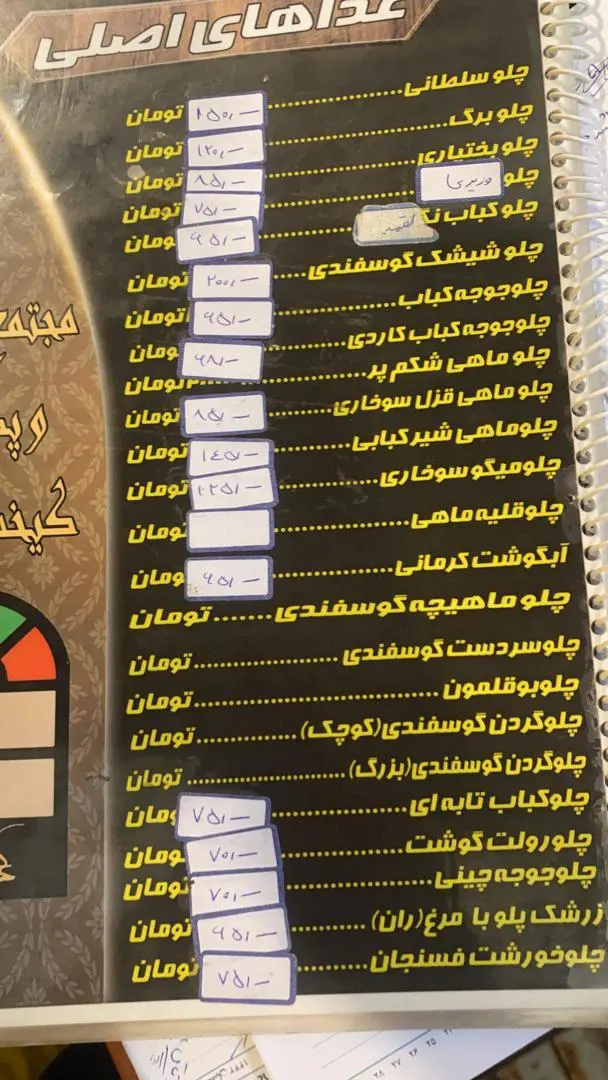 غذاهای اصلی
چلو سلطانی ........ ۱۵۰۱- تومان
چلو برگ ........ ۱۲۰۱- تومان
چلو بختیاری ........ ۸۵۱- تومان
چلو وزیری ........ ۷۵۱- تومان
چلو کباب نگ لقمه ........ ۶۵۱- ومان
چلو شیشک گوسفندی ........ ۲۰۰۱- تومان
چلو جوجه کباب ........ ۶۵۱- تومان
چلو جوجه کباب کاردی ........ ۶۸۱- ومان
چلو ماهی شکم پر ........ تومان
چلو ماهی قزل سوخاری ........ ۸۵۱- تومان
چلو ماهی شیر کبابی ........ ۱۴۵۱- تومان
چلو میگو سوخاری ........ ۱۲۵۱- تومان
چلو قلیه ماهی ........ تومان
آبگوشت کرمانی ........ ۶۵۱- ومان
چلو ماهیچه گوسفندی ........ تومان
چلو سردست گوسفندی ........ تومان
چلو بوقلمون ........ تومان
چلو گردن گوسفندی (کوچک) ........ تومان
چلو گردن گوسفندی (بزرگ) ........ تومان
چلو کباب تابه ای ........ ۷۵۱- ومان
چلو رولت گوشت ........ ۷۰۱- ومان
چلو جوجه چینی ........ ۷۰۱- تومان
زرشک پلو با مرغ (ران) ........ ۶۵۱- تومان
چلو خورشت فسنجان ........ ۷۵۱- تومان